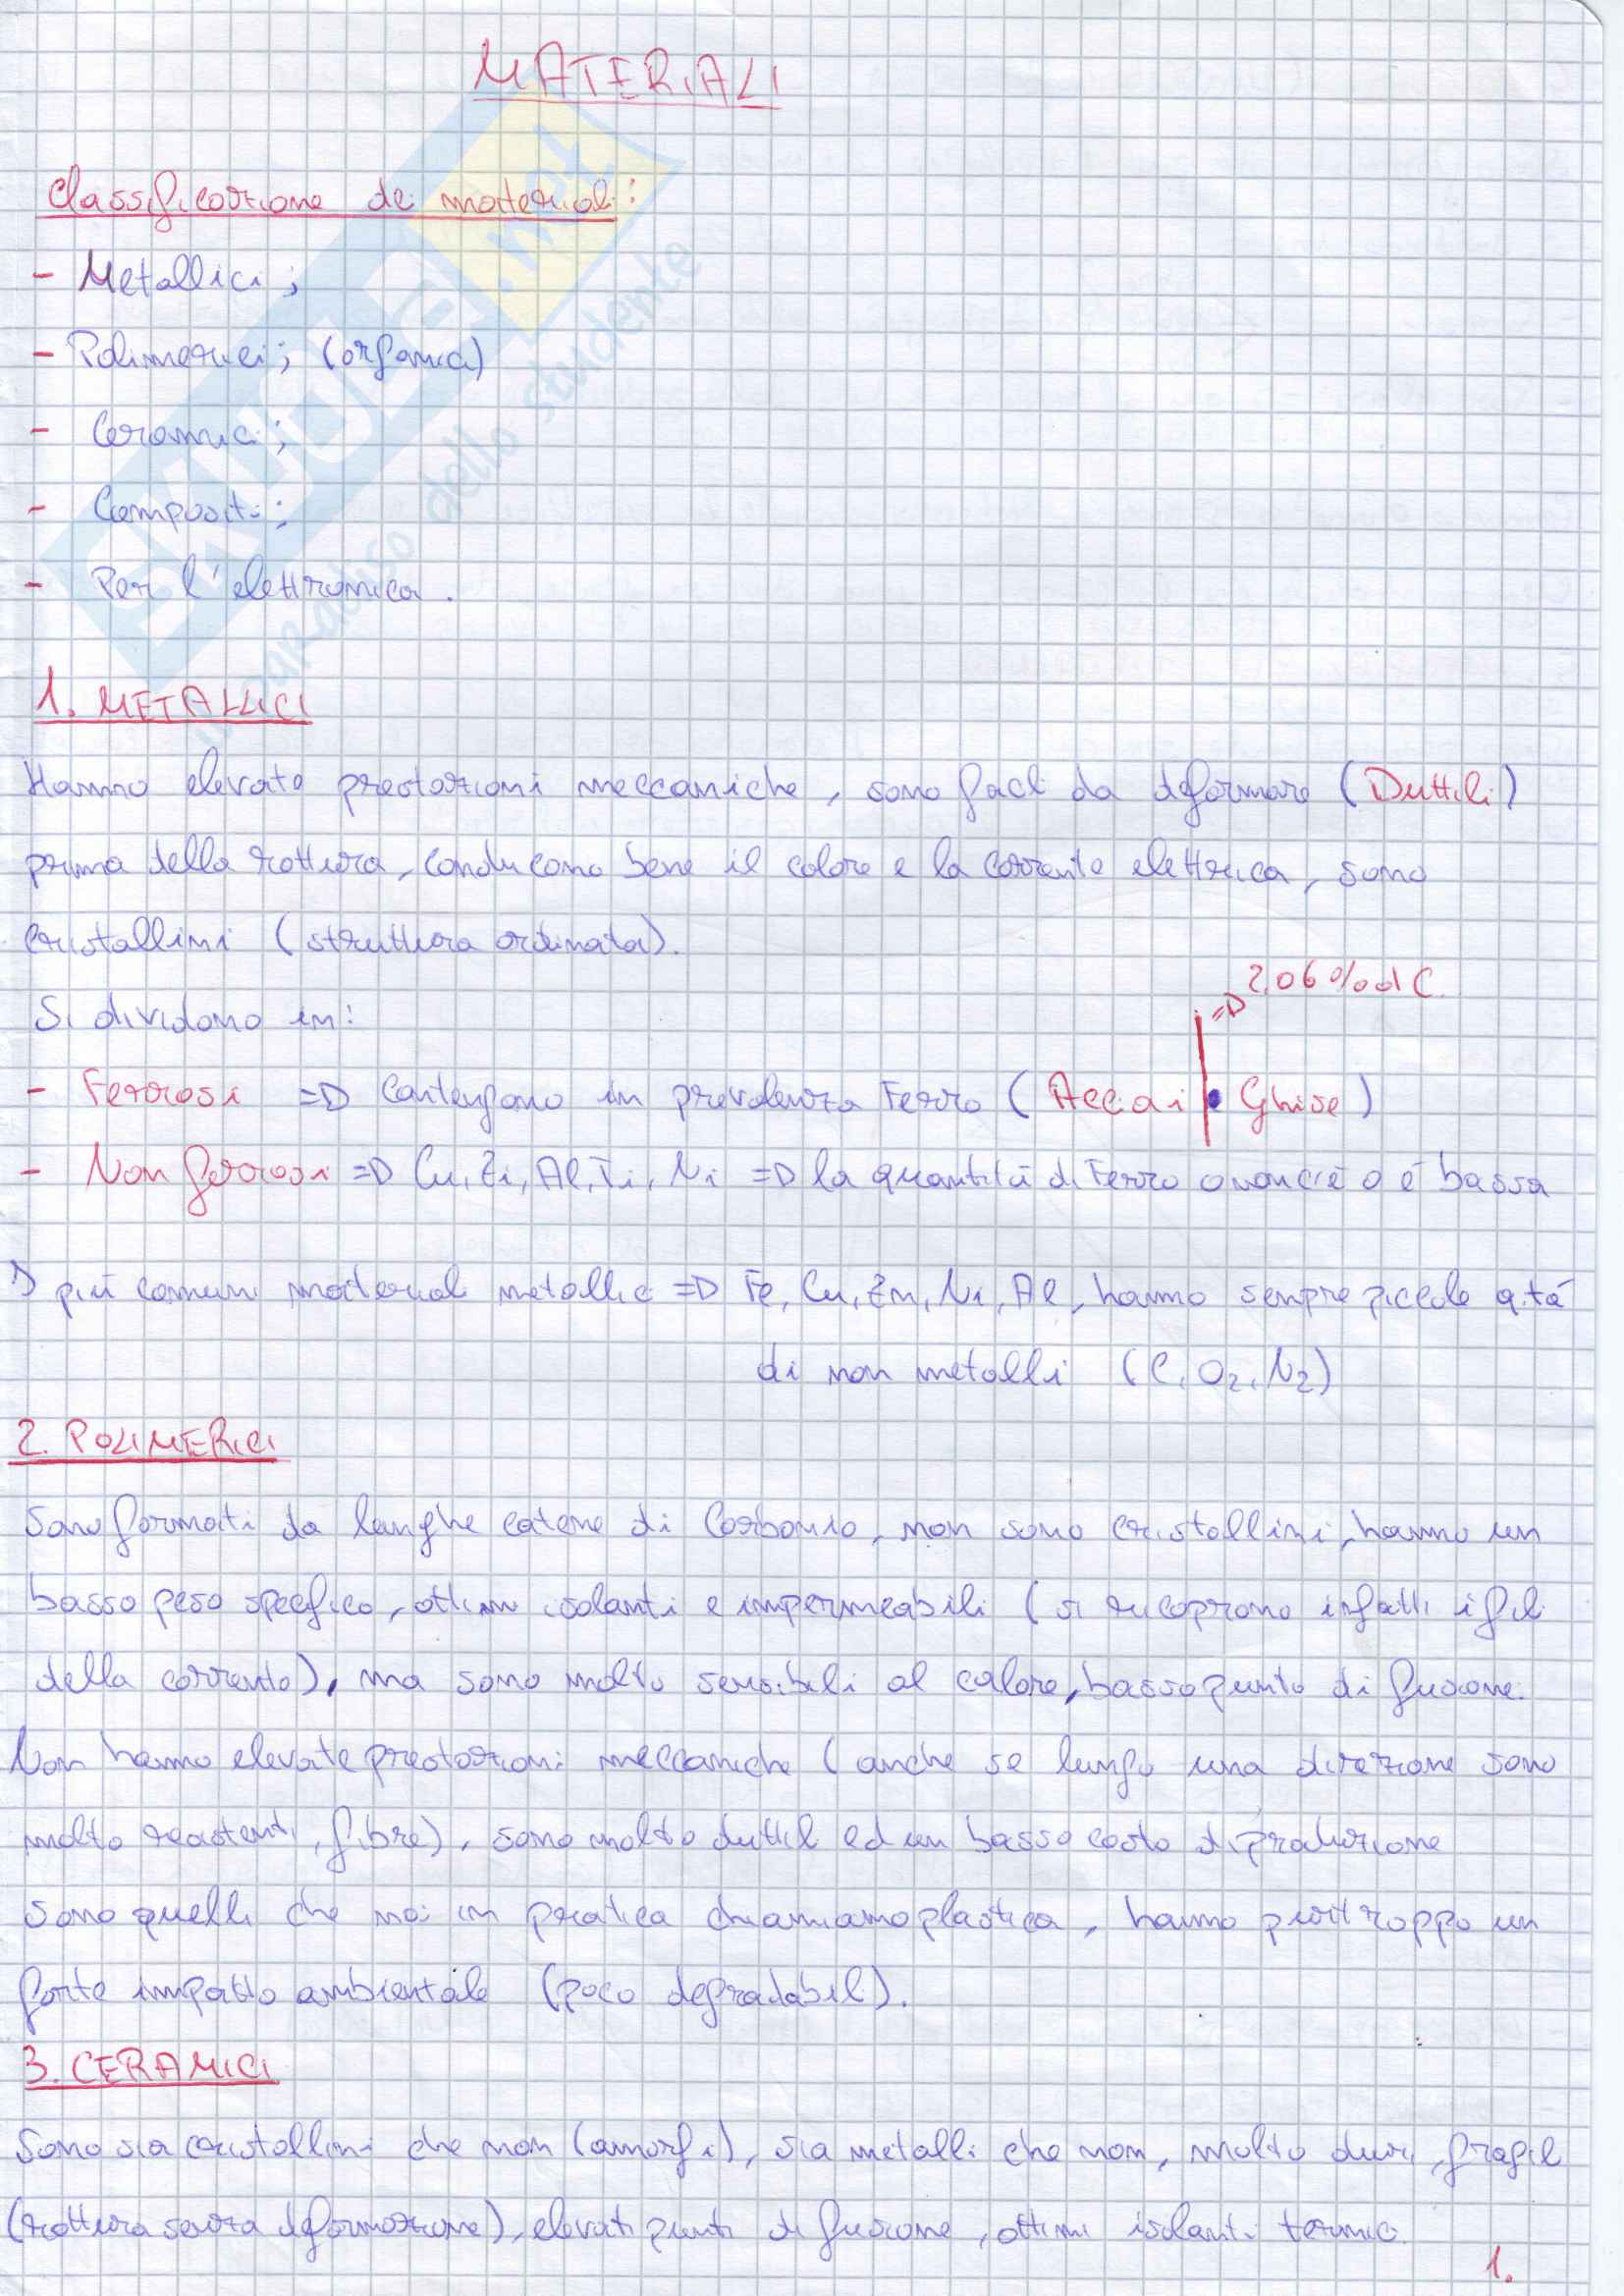 MATERIALI
Classificazione dei materiali:
- Metallici;
- Polimerici; (organici)
- Ceramici;
- Compositi;
- Per l'elettronica.
SKUOLA.net
il paradiso dello studente
1. METALLICI
Hanno elevate prestazioni meccaniche, sono facili da deformare (Duttili)
prima della rottura, conducono bene il calore e la corrente elettrica, sono
cristallini (struttura ordinata).
Si dividono in:
=D 2,06 % di C.
- Ferrosi =D Contengono in prevalenza Ferro (Acciai | Ghise)
- Non ferrosi =D Cu, Zi, Al, Ti, Ni =D la quantità di Ferro o non c'è o è bassa
I più comuni materiali metallici =D Fe, Cu, Zn, Ni, Al, hanno sempre piccole q.tà
di non metalli (C, O₂, N₂)
2. POLIMERICI
Sono formati da lunghe catene di Carbonio, non sono cristallini, hanno un
basso peso specifico, ottimi isolanti e impermeabili (si ricoprono infatti i fili
della corrente), ma sono molto sensibili al calore, basso punto di fusione.
Non hanno elevate prestazioni meccaniche (anche se lungo una direzione sono
molto resistenti, fibre), sono molto duttili ed un basso costo di produzione
sono quelli che noi in pratica chiamiamo plastica, hanno purtroppo un
forte impatto ambientale (poco degradabili).
3. CERAMICI
Sono sia cristallini che non (amorfi), sia metalli che non, molto duri, fragili
(rottura senza deformazione), elevati punti di fusione, ottimi isolanti termici.
1.